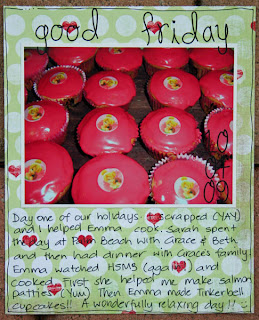 good friday
Day one of our holidays. I scrapped (YAY)
and I helped Emma cook. Sarah spent
the day at Beach with Grace & Beth
and then had dinner with Grace's family.
Emma watched HSM3 (again) and
cooked. First she helped me make salmon
patties (Yum) Then Emma made Tinkerbell
cupcakes!! A wonderfully relaxing day!!